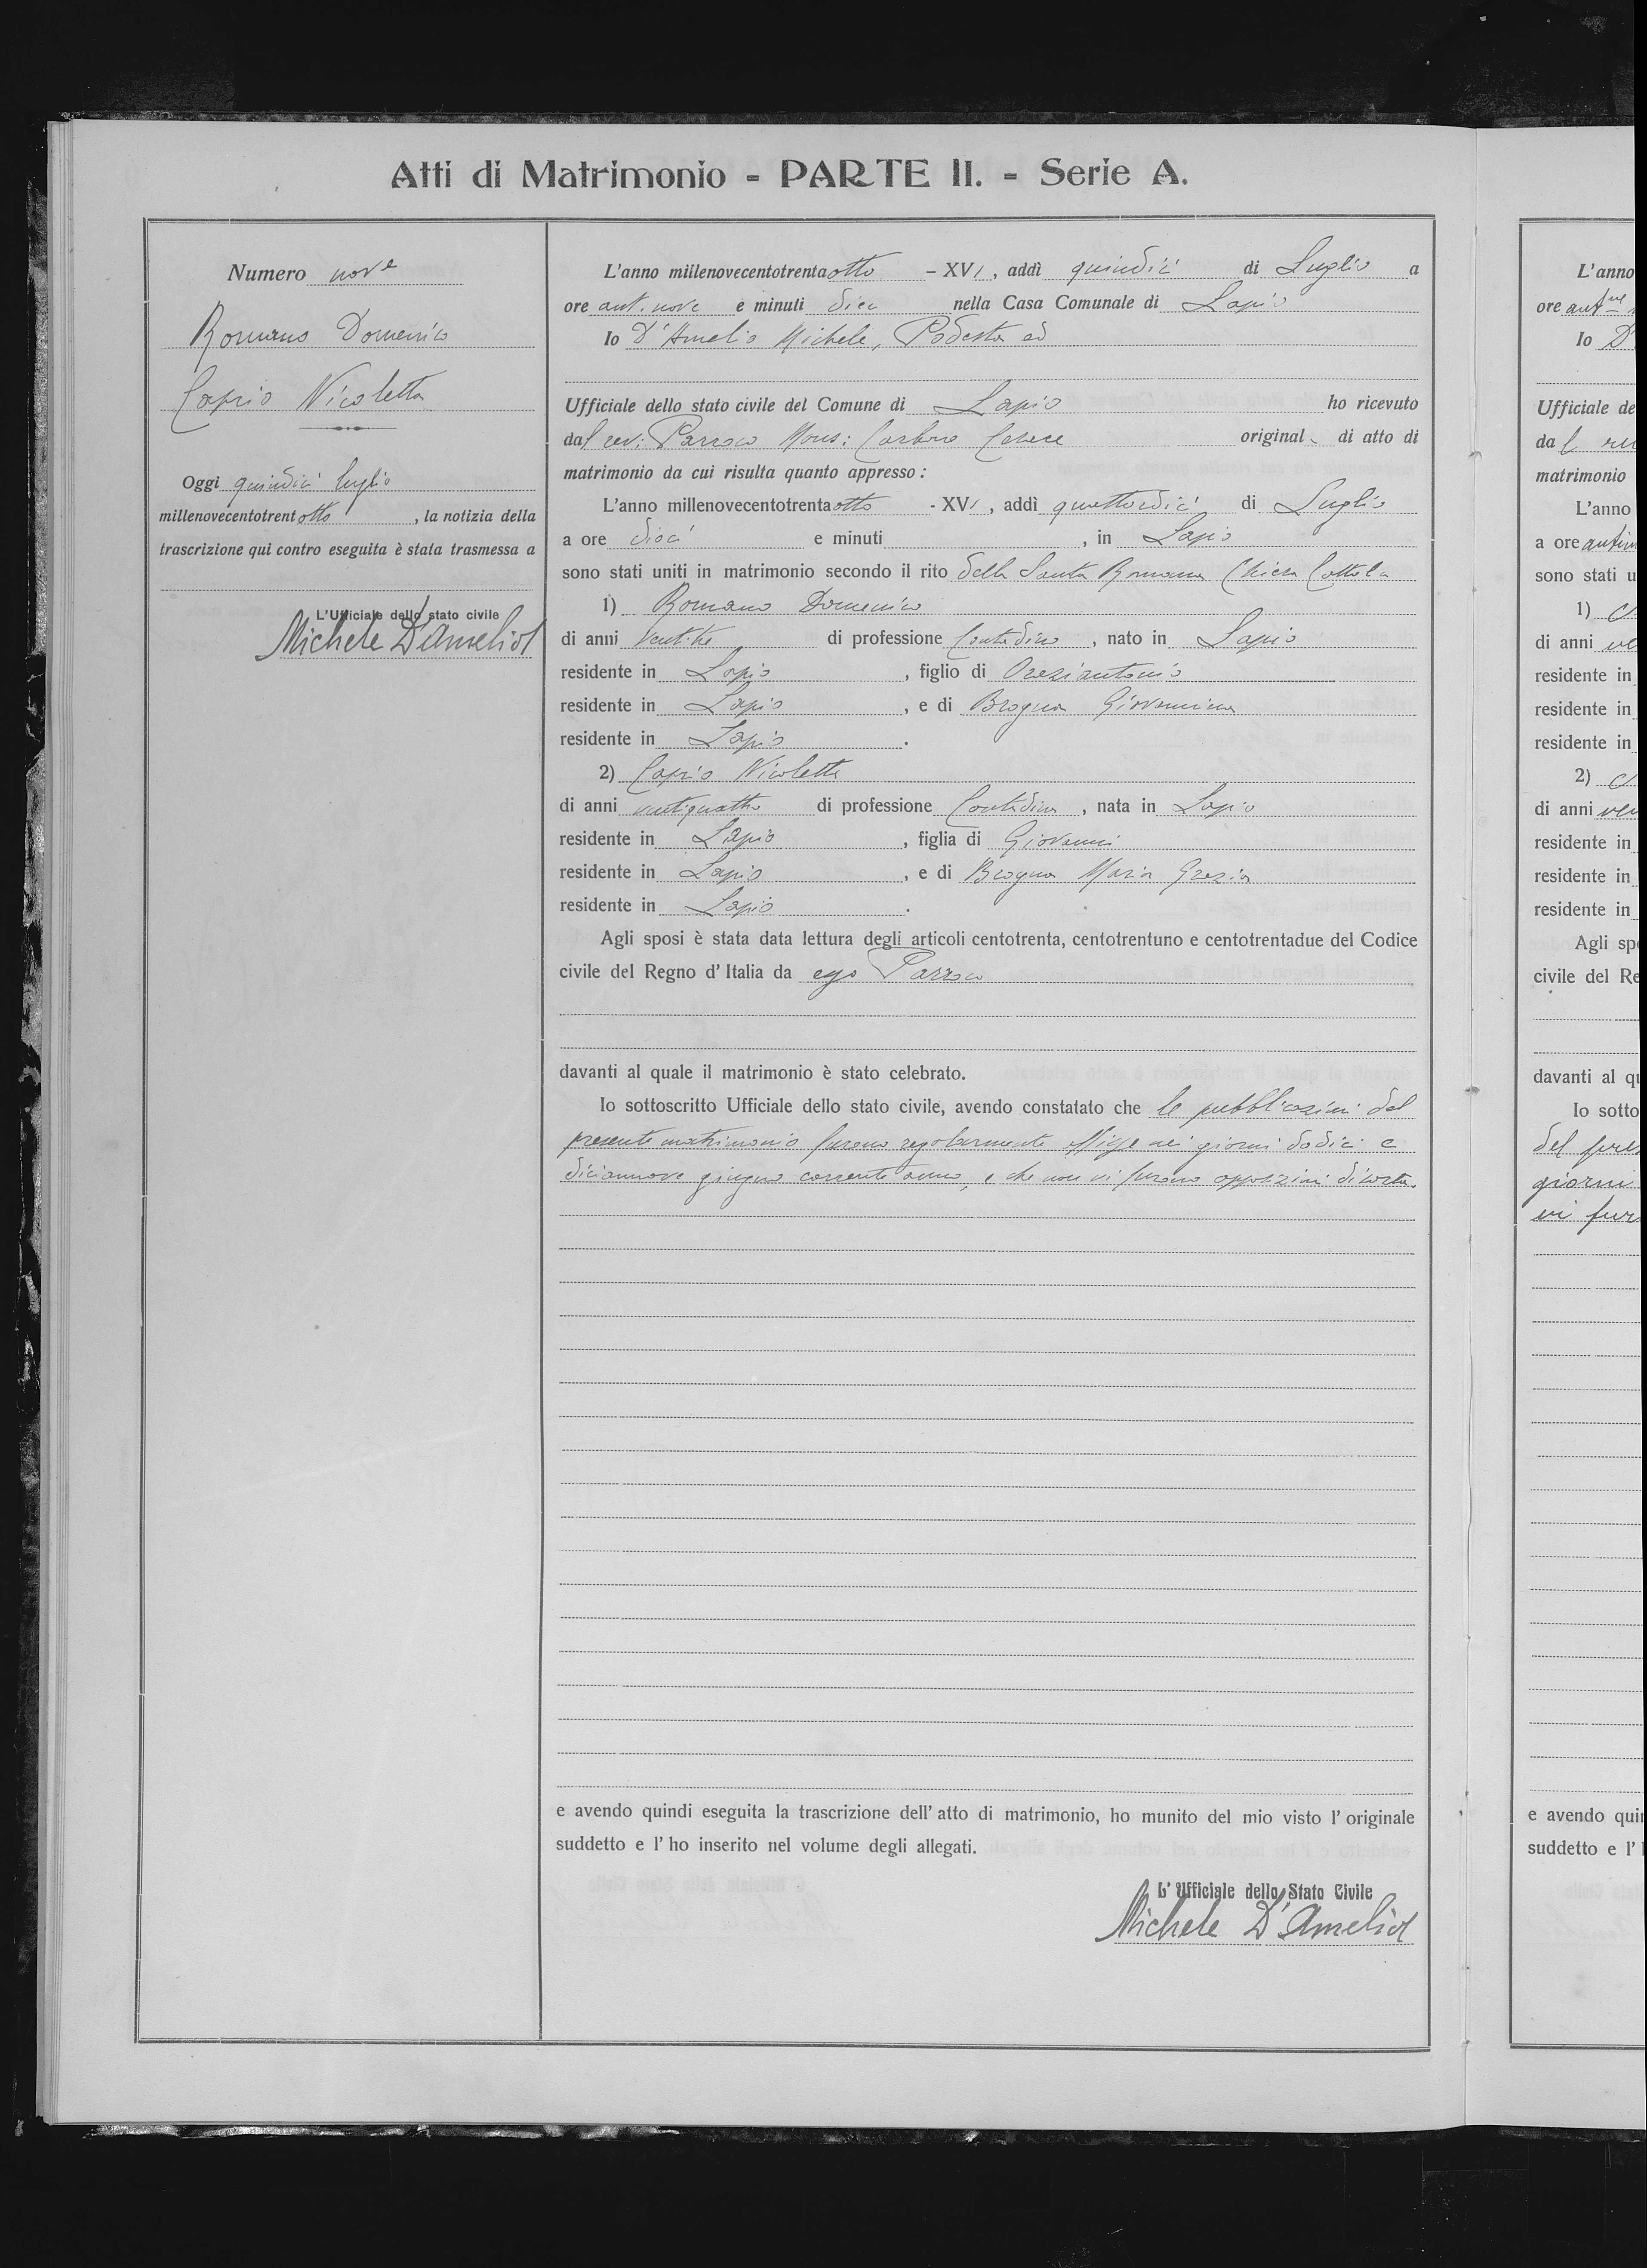 Atti di Matrimonio - PARTE II. - Serie A.
Numero nove
Romano Domenico
Caprio Nicoletta
Oggi quindici luglio
millenovecentotrentotto, la notizia della
trascrizione qui contro eseguita è stata trasmessa a
L'Ufficiale dello stato civile
Michele D'Amelio
L'anno millenovecentotrentaotto - XVI, addì quindici di Luglio a
ore ant. nove e minuti dieci nella Casa Comunale di Lapio
Io D'Amelio Michele, Podestà ed
Ufficiale dello stato civile del Comune di Lapio ho ricevuto
dal rev: Parroco Mons: original di atto di
matrimonio da cui risulta quanto appresso:
L'anno millenovecentotrentaotto - XVI, addì quattordici di Luglio
a ore dieci e minuti , in Lapio
sono stati uniti in matrimonio secondo il rito della Santa Romana Chiesa
1) Romano Domenico
di anni ventitre di professione Contadino, nato in Lapio
residente in Lapio, figlio di Oreziantonio
residente in Lapio, e di Brogna Giovannina
residente in Lapio.
2) Caprio Nicoletta
di anni ventiquattro di professione Contadina, nata in Lapio
residente in Lapio, figlia di Giovanni
residente in Lapio, e di Brogna Maria Grazia
residente in Lapio.
Agli sposi è stata data lettura degli articoli centotrenta, centotrentuno e centotrentadue del Codice
civile del Regno d'Italia da Parroco
davanti al quale il matrimonio è stato celebrato.
Io sottoscritto Ufficiale dello stato civile, avendo constatato che le pubblicazioni del
presente matrimonio furono regolarmente affisse nei giorni dodici e
diciannove giugno corrente anno, e che non vi furono opposizioni di sorta.
e avendo quindi eseguita la trascrizione dell'atto di matrimonio, ho munito del mio visto l'originale
suddetto e l'ho inserito nel volume degli allegati.
L'Ufficiale dello Stato Civile
Michele D'Amelio
L'anno
ore
Io D'
Ufficiale de
matrimonio
L'anno
a ore
sono stati u
1)
di anni
residente in
residente in
residente in
2)
di anni
residente in
residente in
residente in
Agli spo
civile del Re
davanti al qu
Io sotto
del pres
giorni
vi furo
e avendo quin
suddetto e l'